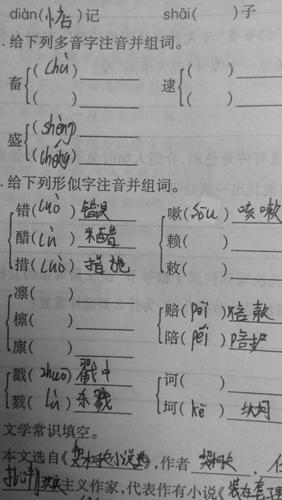 diàn(惦)记 shāi( )子
. 给下列多音字注音并组词。
畜{(chù) ( ) 逮{( ) ( )
盛{(shèng) (chéng)
. 给下列形似字注音并组词。
错(cuò)错误 嗽(sòu)咳嗽
醋(cù)米醋 赖( )
措(cuò)措施 敕( )
凛( )
檩( ) 赔(péi)赔款
廪( ) 陪(péi)陪护
戳(chuō)戳中 诃( )
戮(lù)杀戮 坷(kě)坎坷
文学常识填空。
本文选自《 小说 》,作者
主义作家,代表作有小说《装在套子里